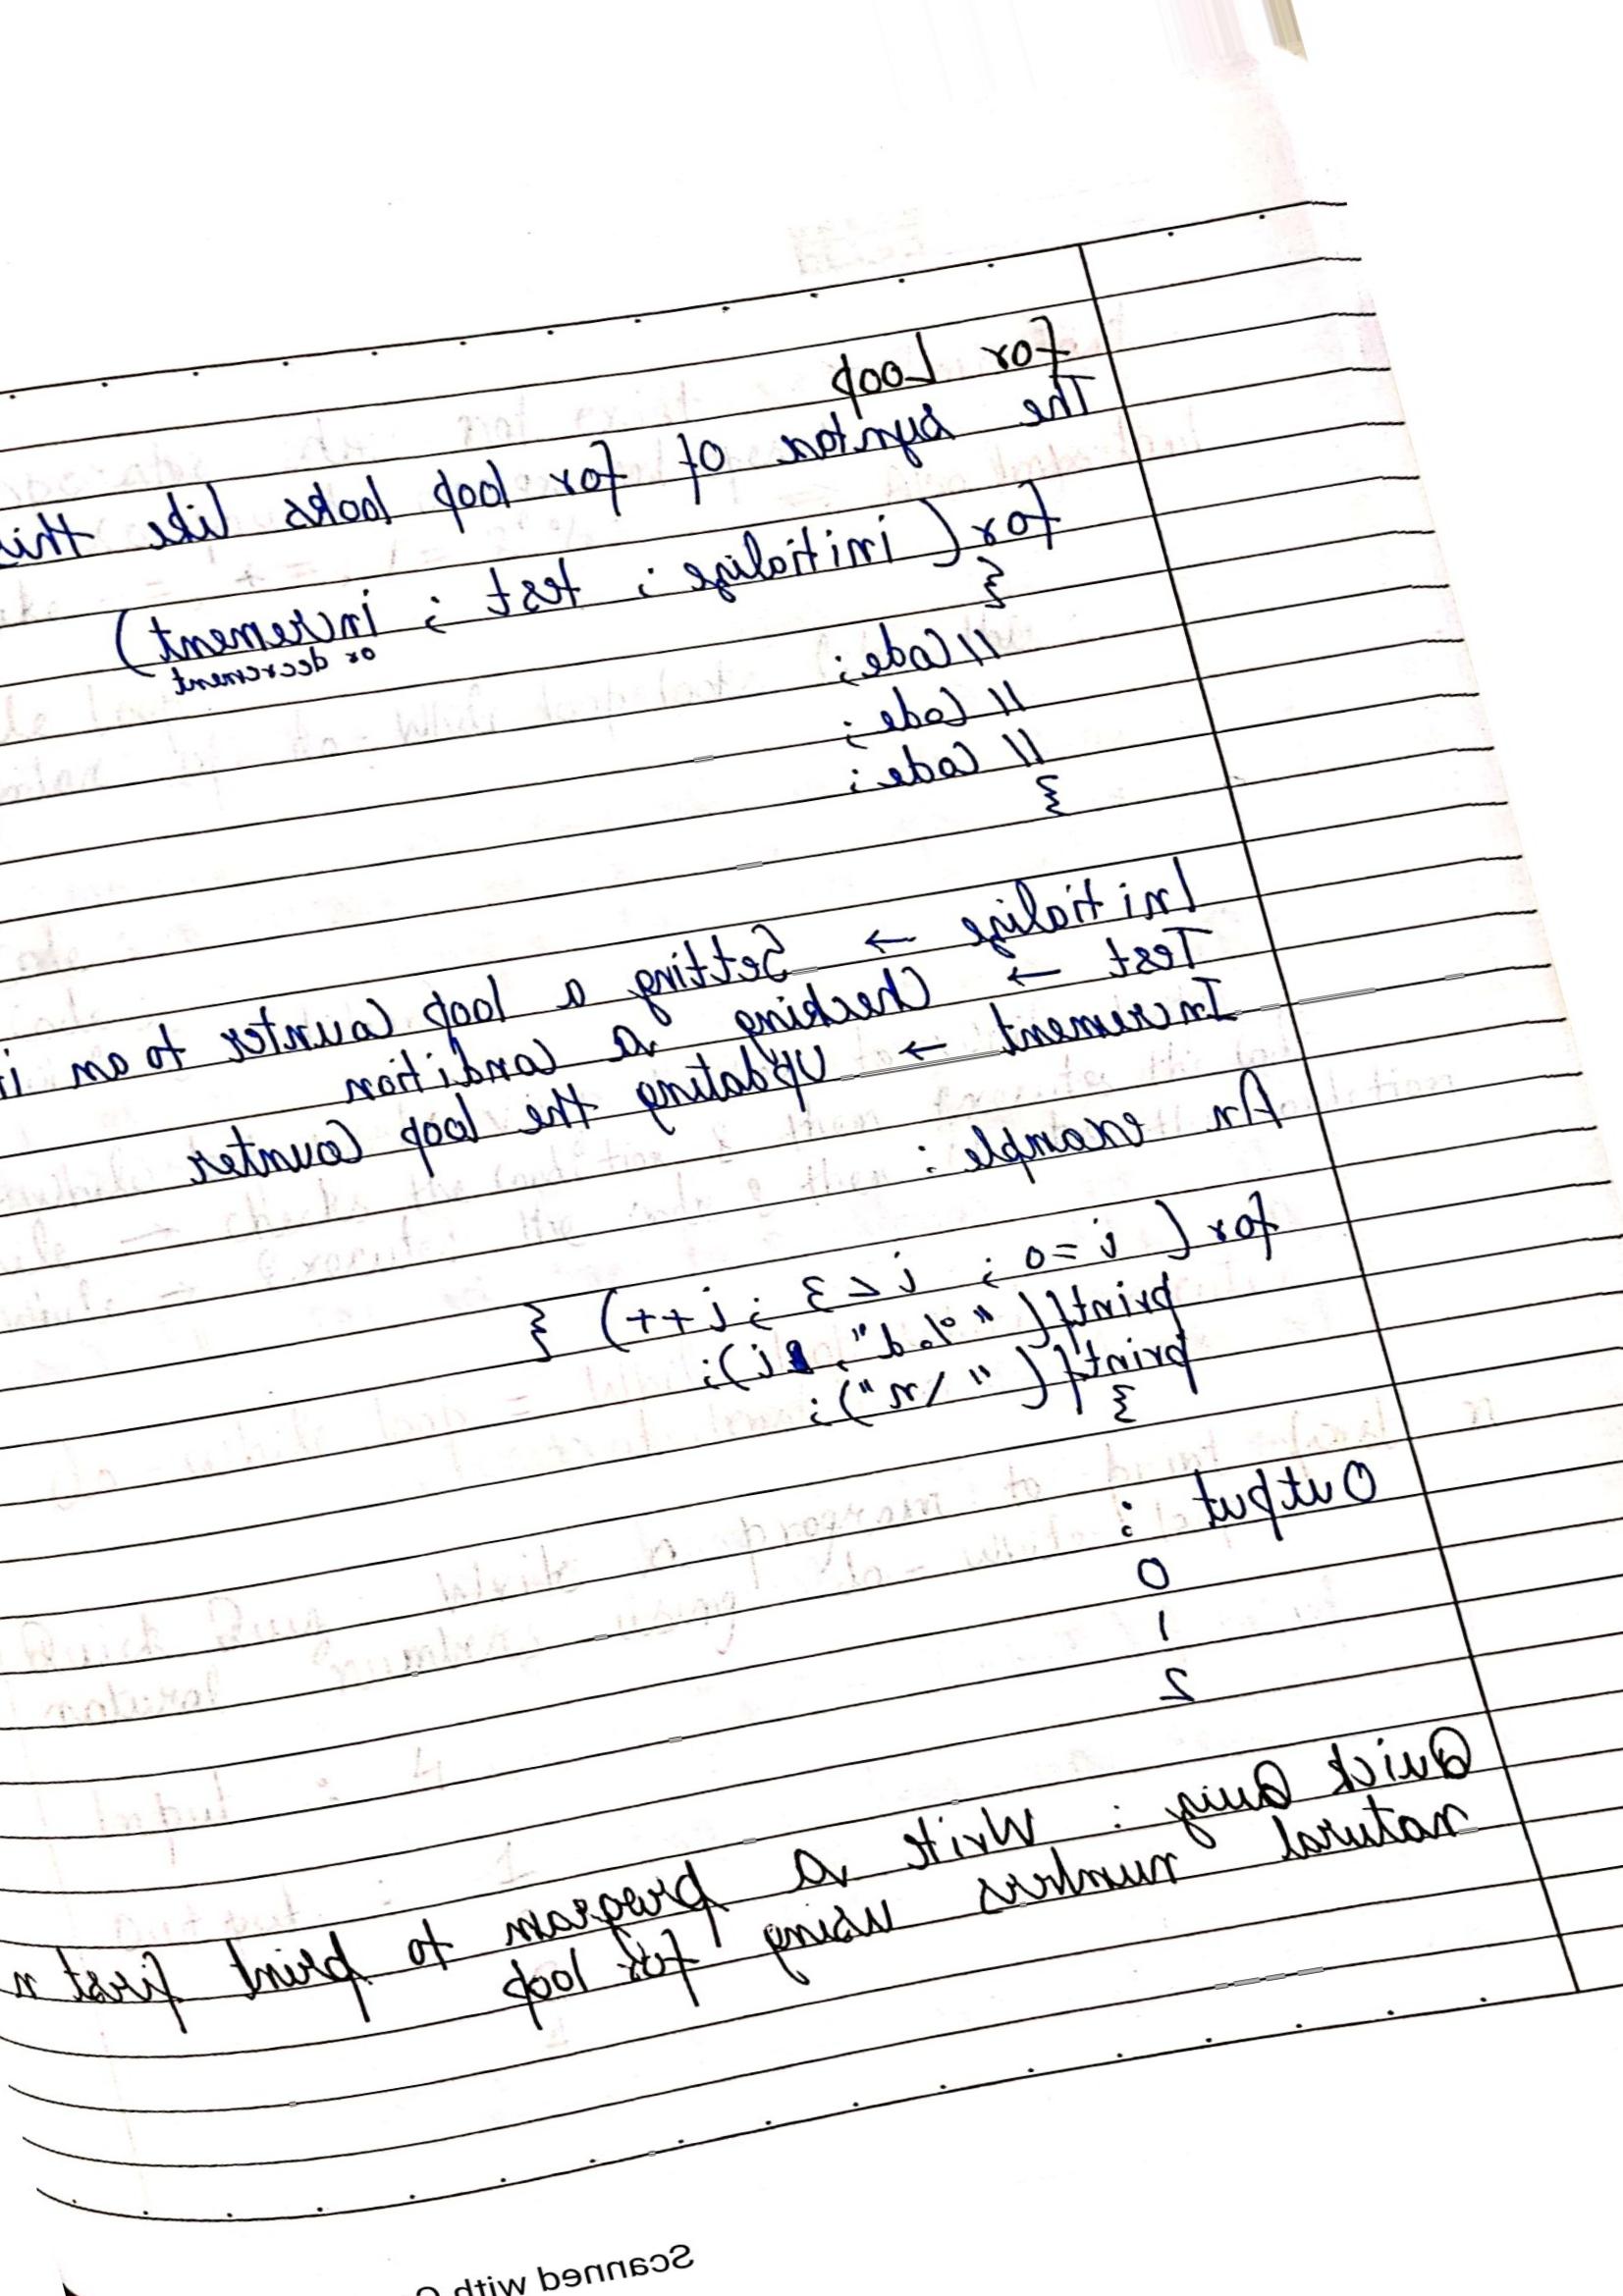 for Loop
The syntax of for loop looks like this
for ( initialize ; test ; increment )
or decrement
{
// Code ;
// Code ;
// Code ;
}
Initialize → Setting a loop Counter to an
Test → Checking a Condition
Increment → Updating the loop Counter
An example :
for ( i = 0 ; i < 3 ; i ++ ) {
printf ( "%d", i );
printf ( "\n" );
}
Output :
0
1
2
Quick Quiz : Write a program to print first n
natural numbers using for loop
Scanned with